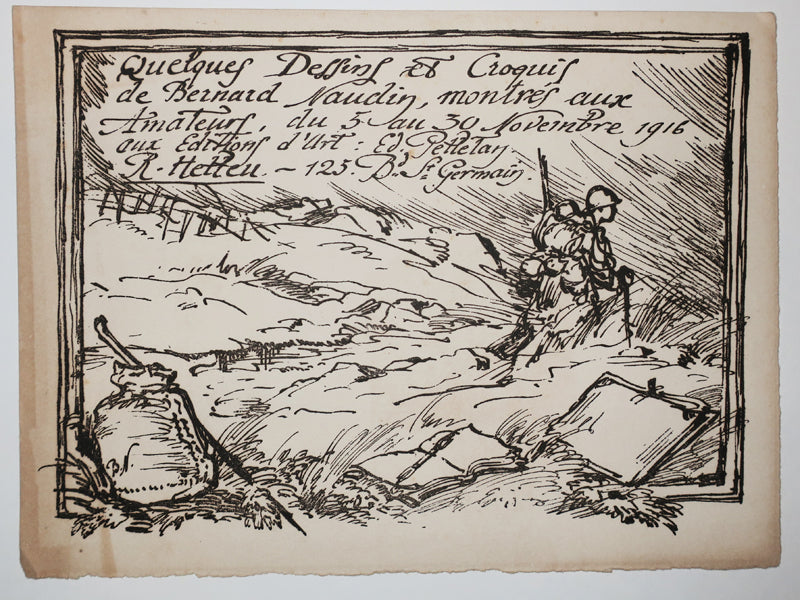 Quelques Dessins et Croquis
de Bernard Naudin, montrés aux
Amateurs, du 5 au 30 Novembre 1916
aux Editions d'Art: Ed. Pelletan,
R. Helleu. - 125. Bd. St. Germain.
BN